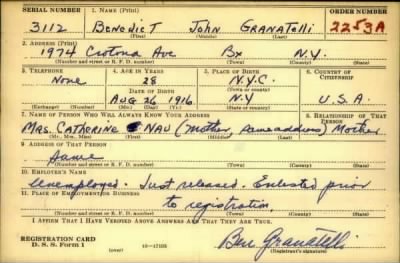 SERIAL NUMBER 1. NAME (Print) ORDER NUMBER
3112 BENEDICT JOHN GRANATELLI 2253A
(First) (Middle) (Last)
2. ADDRESS (Print)
1974 Crotona Ave Bx N.Y.
(Number and street or R. F. D. number) (Town) (County) (State)
3. TELEPHONE 4. AGE IN YEARS 5. PLACE OF BIRTH 6. COUNTRY OF CITIZENSHIP
None 28 N.Y.C.
DATE OF BIRTH (Town or county)
AUG 26 1916 N.Y U.S.A.
(Exchange) (Number) (Mo.) (Day) (Yr.) (State or country)
7. NAME OF PERSON WHO WILL ALWAYS KNOW YOUR ADDRESS 8. RELATIONSHIP OF THAT PERSON
MRS. CATHERINE NAU (Mother, Same address) Mother
(Mr., Mrs., Miss) (First) (Middle) (Last)
9. ADDRESS OF THAT PERSON
Same
(Number and street or R. F. D. number) (Town) (County) (State)
10. EMPLOYER'S NAME
Unemployed. Just released. Enlested prior
11. PLACE OF EMPLOYMENT OR BUSINESS
to registration.
(Number and street or R. F. D. number) (Town) (County) (State)
I AFFIRM THAT I HAVE VERIFIED ABOVE ANSWERS AND THAT THEY ARE TRUE.
REGISTRATION CARD
D. S. S. Form 1 (over) 16—17105 Ben Granatelli
(Registrant's signature)